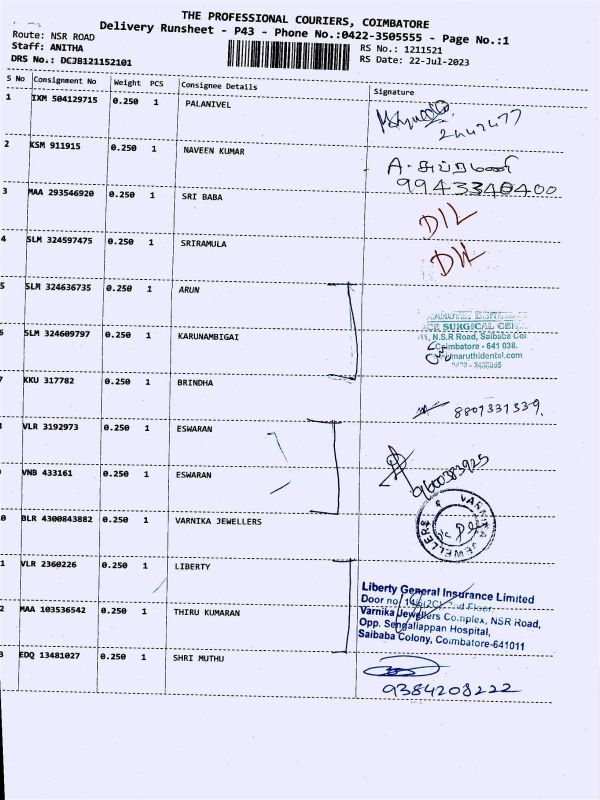 THE PROFESSIONAL COURIERS, COIMBATORE
Delivery Runsheet - P43 - Phone No.:0422-3505555 - Page No.:1
Route: NSR ROAD
Staff: ANITHA
DRS No.: DCJB121152101
RS No.: 1211521
RS Date: 22-Jul-2023
S No Consignment No Weight PCS Consignee Details Signature
1 IXM 504129715 0.250 1 PALANIVEL
2 KSM 911915 0.250 1 NAVEEN KUMAR
9943340400
3 MAA 293546920 0.250 1 SRI BABA DIL
4 SLM 324597475 0.250 1 SRIRAMULA DIL
5 SLM 324636735 0.250 1 ARUN
6 SLM 324609797 0.250 1 KARUNAMBIGAI
SURGICAL
N.S.R Road, Saibaba Col
Coimbatore - 641 038.
maruthidental.com
7 KKU 317782 0.250 1 BRINDHA
8 VLR 3192973 0.250 1 ESWARAN
9 VNB 433161 0.250 1 ESWARAN
9600383925
0 BLR 4300843882 0.250 1 VARNIKA JEWELLERS
VARNIKA JEWELLERS
1 VLR 2360226 0.250 1 LIBERTY
2 MAA 103536542 0.250 1 THIRU KUMARAN
Liberty General Insurance Limited
Door no
Varnika Jewellers Complex, NSR Road,
Opp. Sengaliappan Hospital,
Saibaba Colony, Coimbatore-641011
3 EDQ 13481027 0.250 1 SHRI MUTHU
9384208222